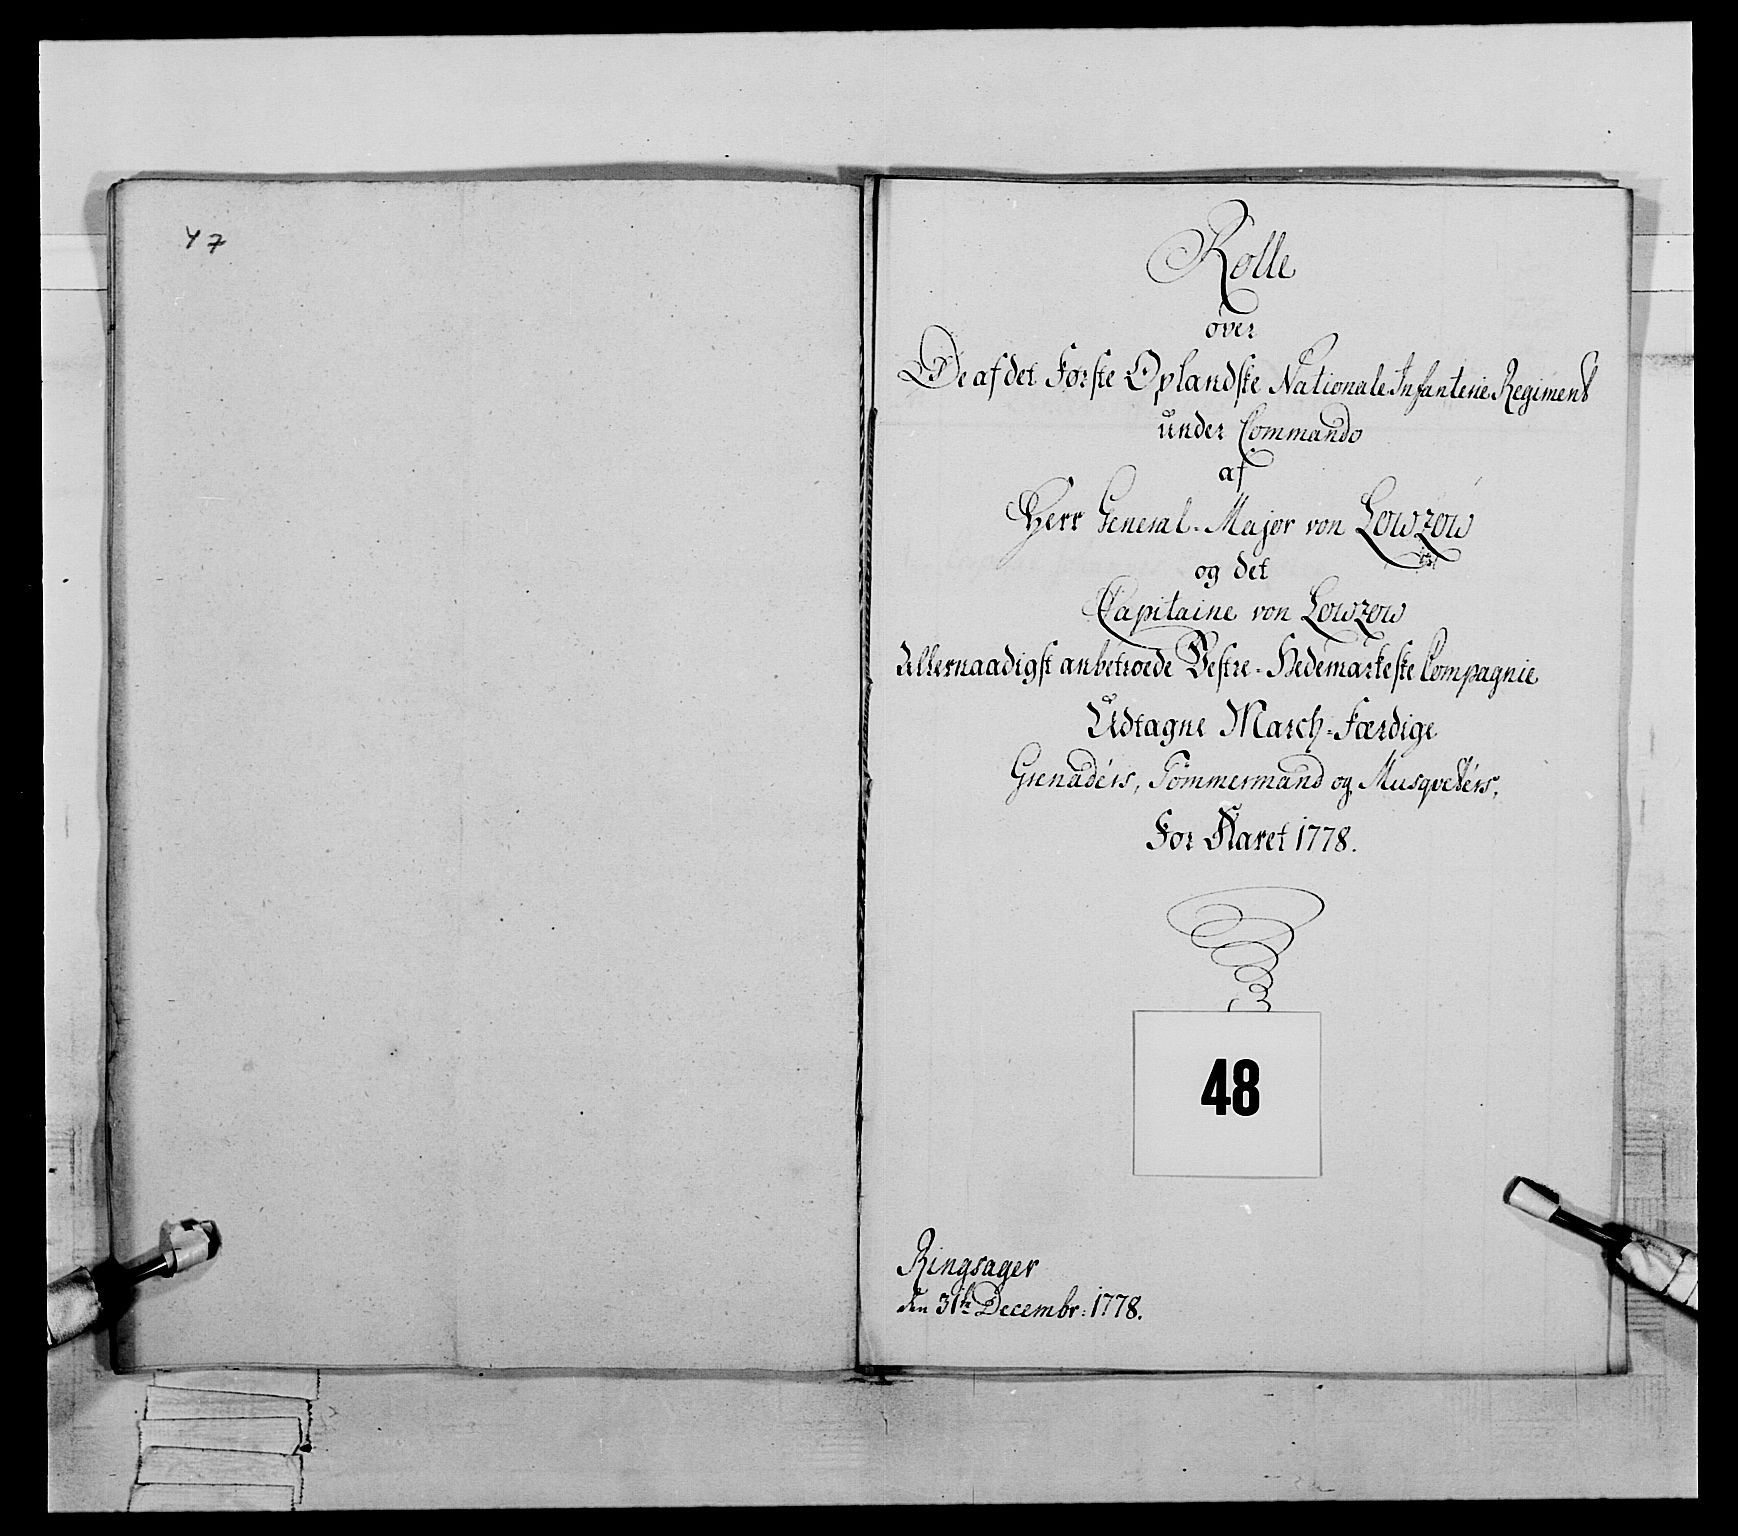 47
Rolle
over
De af det Første Oplandske Nationale Infanterie Regiment
under Commando
af
Herr General-Major von Lowzow
og det
Capitaine von Lowzow
Allernaadigst anbetroede Vestre-Hedemarkeske Compagnie
Udtagne March-Færdige
Grenadérs, Tömmermænd og Musqvetérs,
For Aaret 1778.
48
Ringsager
den 31te Decembr: 1778.